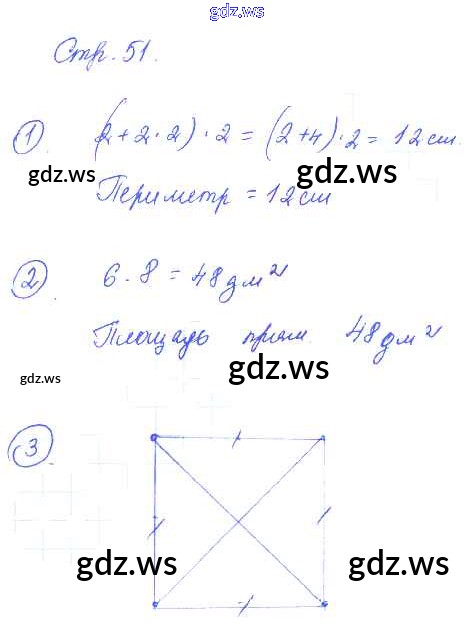 gdz.ws
Стр. 51.
1. (2+2·2)·2=(2+4)·2=12см.
gdz.ws gdz.ws
Периметр = 12см
2. 6·8=48дм²
Площадь прям. 48дм²
gdz.ws gdz.ws
3
gdz.ws gdz.ws